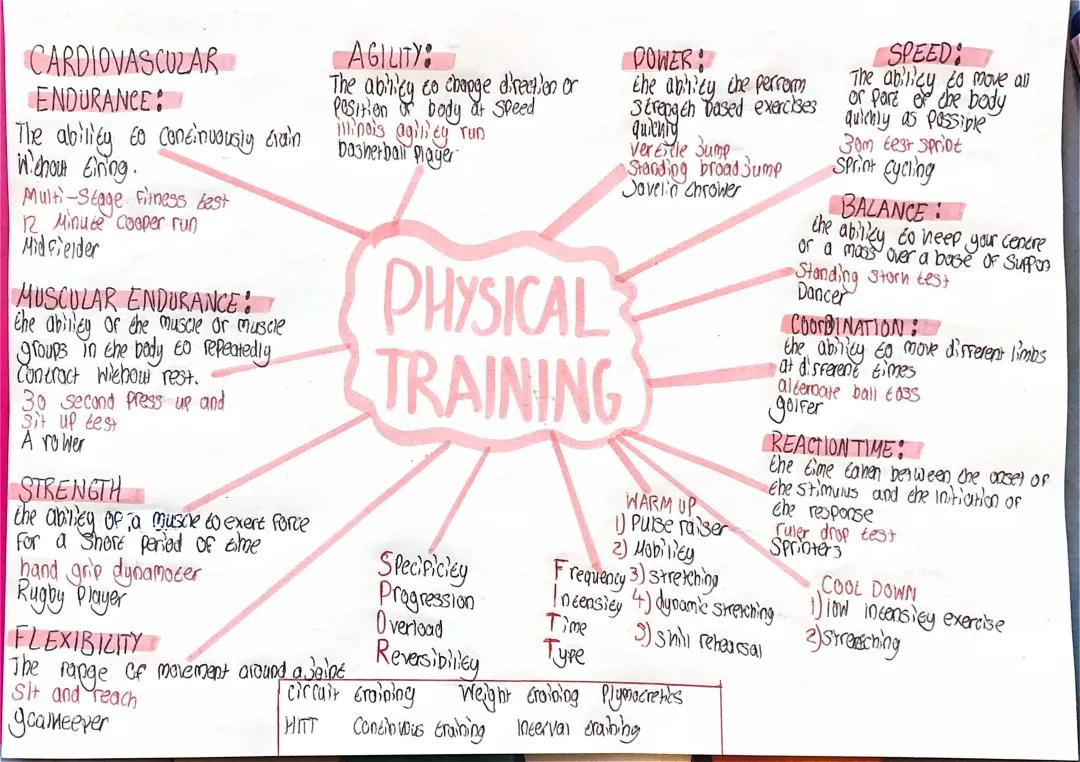 PHYSICAL
TRAINING
CARDIOVASCULAR
ENDURANCE:
The ability to continuously train
without tiring.
Multi-Stage Fitness test
12 Minute cooper run
Midfielder
MUSCULAR ENDURANCE:
the ability of the muscle or muscle
groups in the body to repeatedly
contract without rest.
30 second press up and
sit up test
A rower
STRENGTH
the ability of a muscle to exert force
for a short period of time
hand grip dynamoter
Rugby player
FLEXIBILITY
The range of movement around a joint
sit and reach
goalkeeper
AGILITY:
The ability to change direction or
position of body at speed
illinois agility run
basketball player
POWER:
the ability the perform
strength based exercises
quickly
verticle jump
Standing broad jump
Javelin thrower
SPEED:
The ability to move all
or part of the body
quickly as possible
30m test sprint
Sprint cycling
BALANCE:
the ability to keep your centre
of a mass over a base of support
Standing stork test
Dancer
COORDINATION:
the ability to move different limbs
at different times
alternate ball toss
golfer
REACTION TIME:
the time taken between the onset of
the stimulus and the initiation of
the response
ruler drop test
Sprinters
Specificity
Progression
Overload
Reversibility
Frequency
Intensity
Time
Type
WARM UP
1) Pulse raiser
2) Mobility
3) stretching
4) dynamic stretching
5) skill rehearsal
COOL DOWN
1) low intensity exercise
2) stretching
circuit training Weight training Plymocretics
HITT Continuous training Interval training